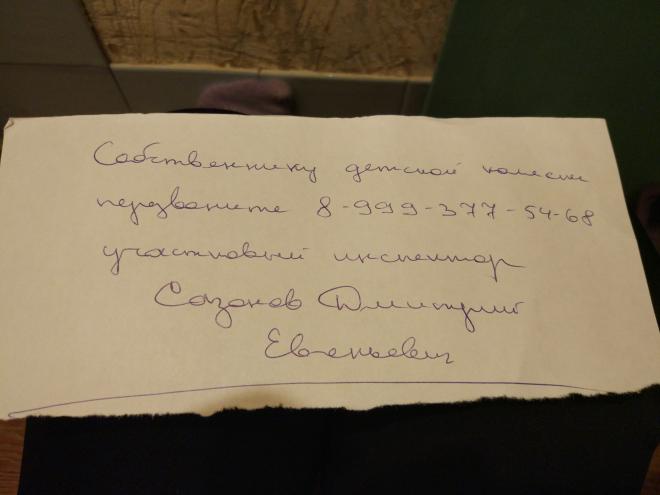 Собственнику детской коляски
перезвоните 8-999-377-54-68
участковый инспектор
Сазонов Дмитрий
Евгеньевич